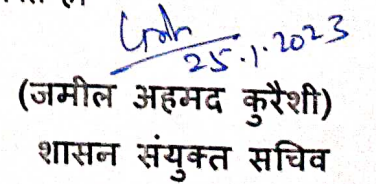 25.1.2023
(जमील अहमद कुरैशी)
शासन संयुक्त सचिव